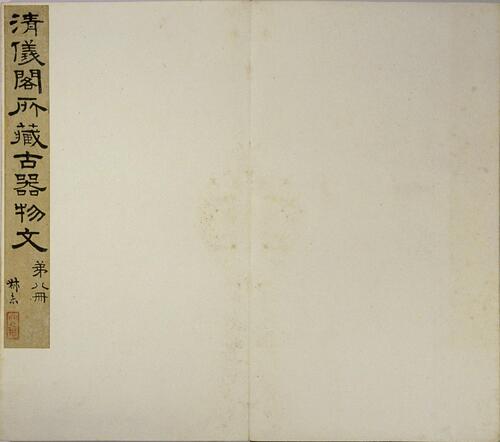 清儀閣所藏古器物文
第八冊